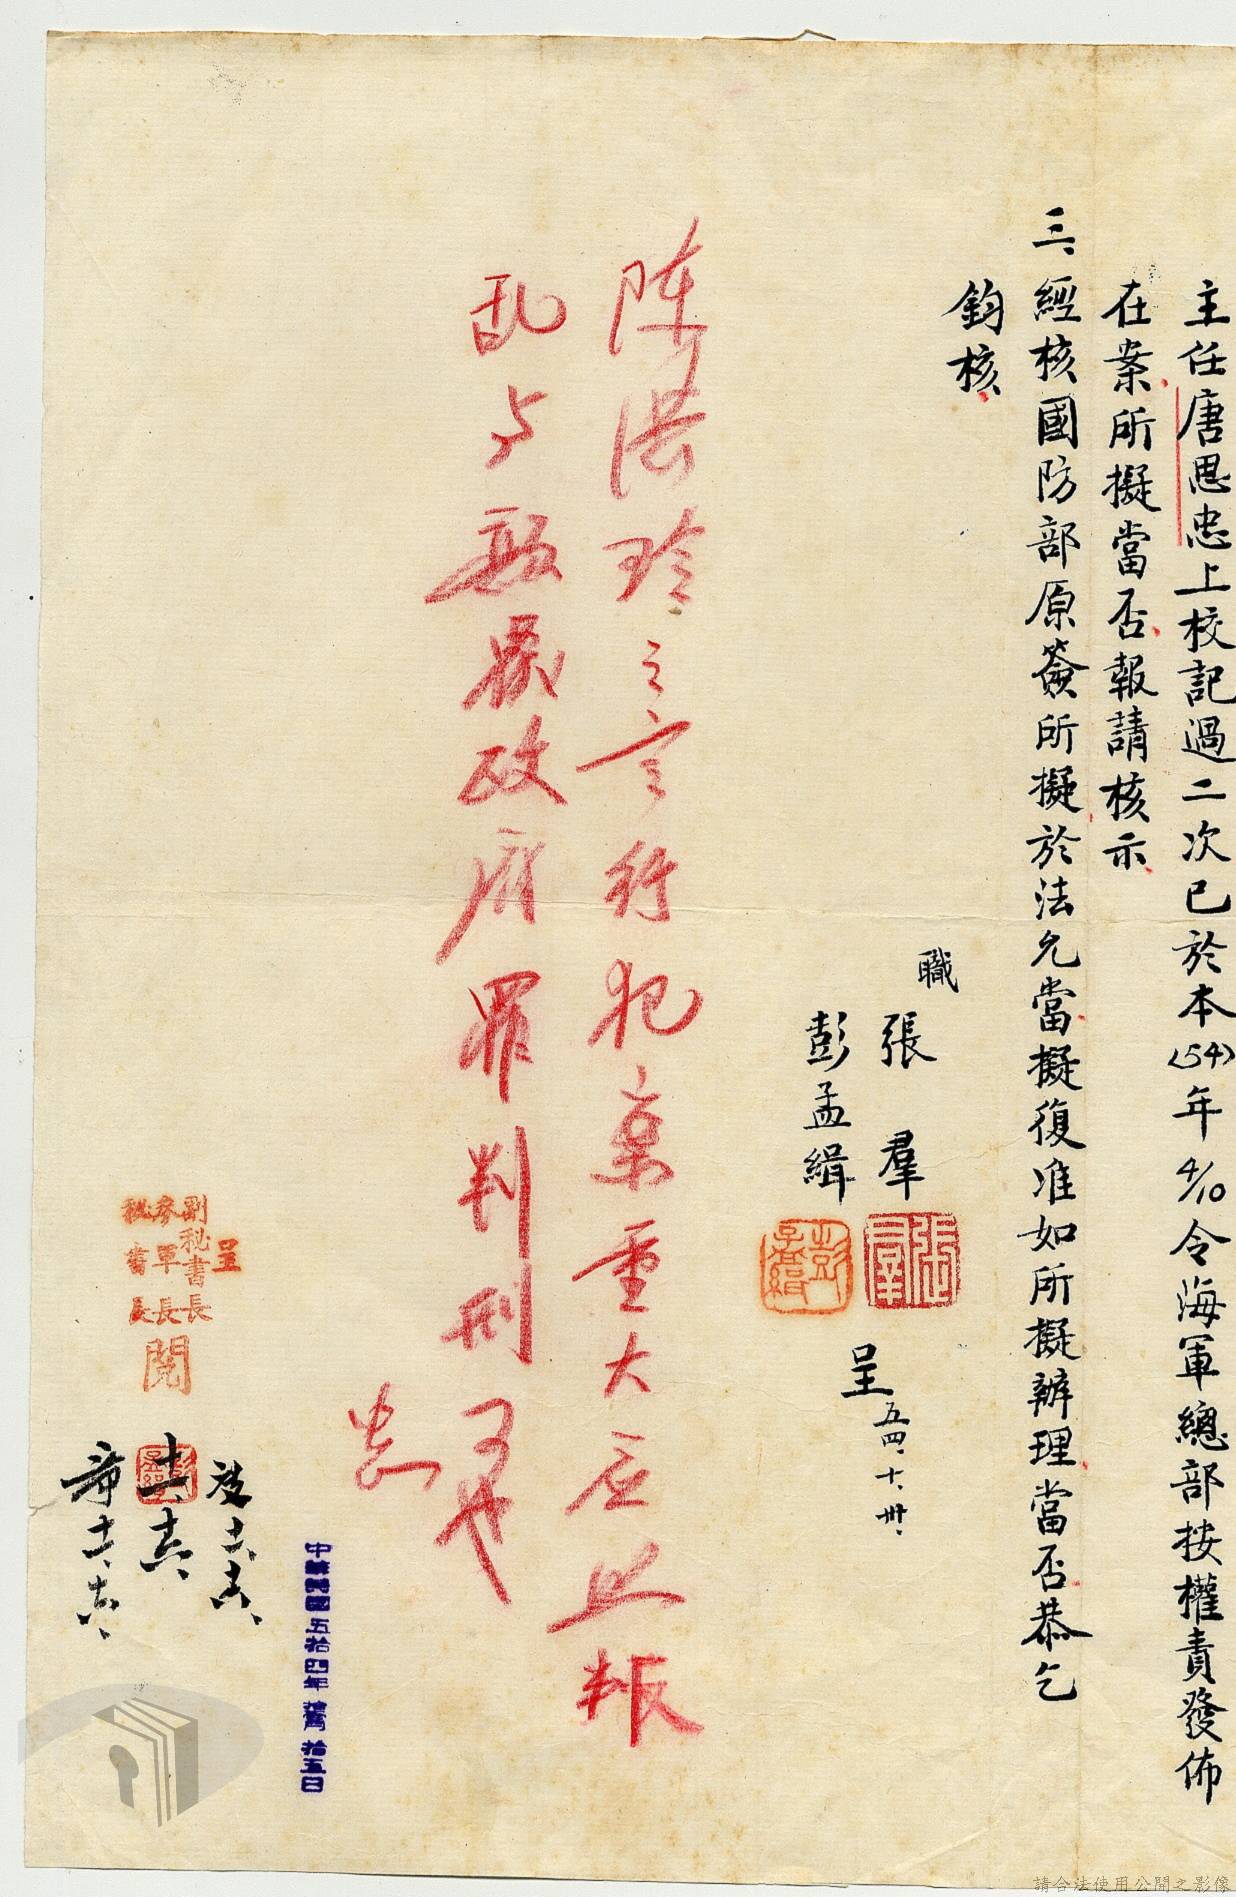 主任唐思忠上校記過二次已於本(54)年4/10令海軍總部按權責發佈
在案所擬當否報請核示
三、經核國防部原簽所擬於法允當擬復准如所擬辦理當否恭乞
鈞核
職
張羣
彭孟緝
呈
五四、十、卅、
張羣
彭孟緝
之言行犯案重大应照叛
乱与颠覆政府罪判刑可也
呈
副秘書長
參軍長
秘書長
閱
中華民國五拾四年
拾五日
請合法使用公開之影像